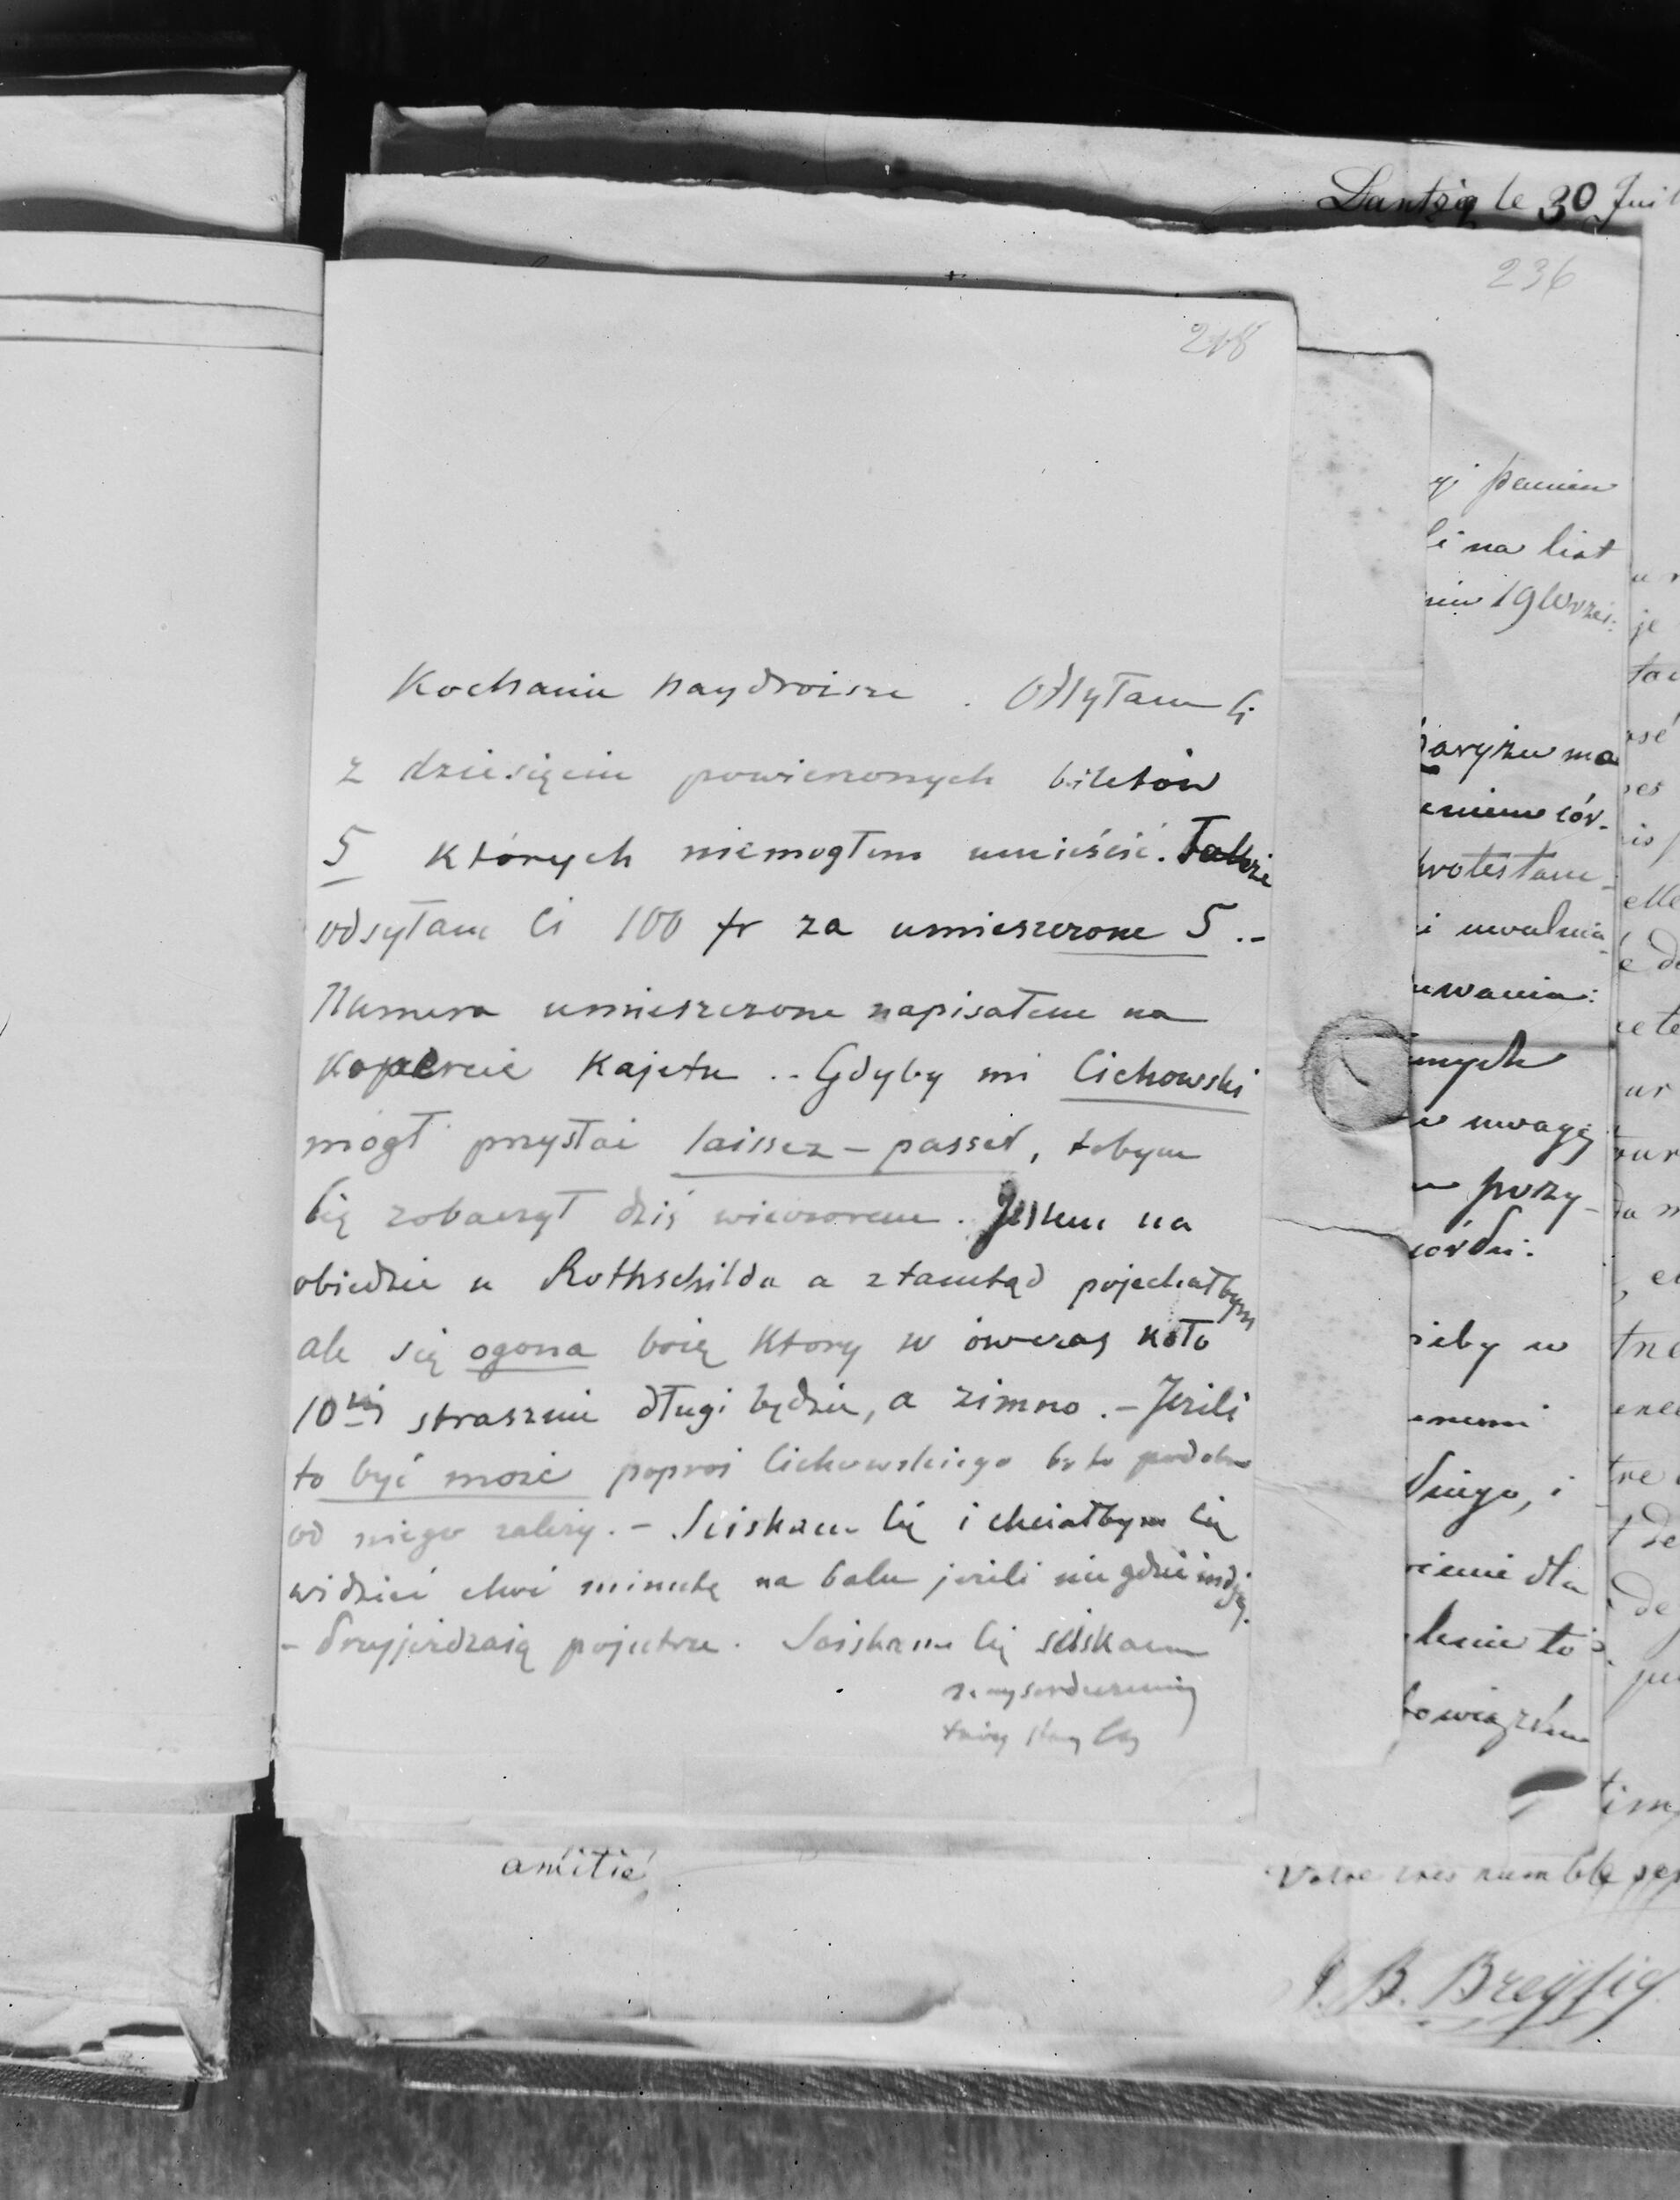 Dantzig le 30 Juil
236
218
Kochanie naydroższe . Odsyłam Ci
z dziesięciu powierzonych biletów
5 których niemogłem umieścić. Także
odsyłam Ci 100 fr za umieszczone 5 .-
Numera umieszczone napisałem na
kopercie Kajetu .. Gdyby mi Cichowski
mógł przysłać laissez-passer, tobym
Cię zobaczył dziś wieczorem . Jestem na
obiedzie u Rothschilda a ztamtąd pojechałbym
ale się ogona boię ktory w ówczas koło
10tej strasznie długi będzie, a zimno .- Jeżeli
to być może popros Cichowskiego bo to podobno
od niego zależy. - Sciskam Cię i chciałbym Cię
widzieć choć minutę na balu jeżeli nie gdzieindziej.
- Przyjeżdzaią pojutrze . Sciskam Cię sciskam
nayserdeczniey
twoy stary
amitié,
yi panien
li na list
niu 19 Wrześ:
Paryżu ma
protestam
i uwalnia
uwania:
mych
w uwagę
przy-
żeby w
dniego, i
wienie dla
lenie to
bowiązków
Votre très humble ser
J. B. Breysig